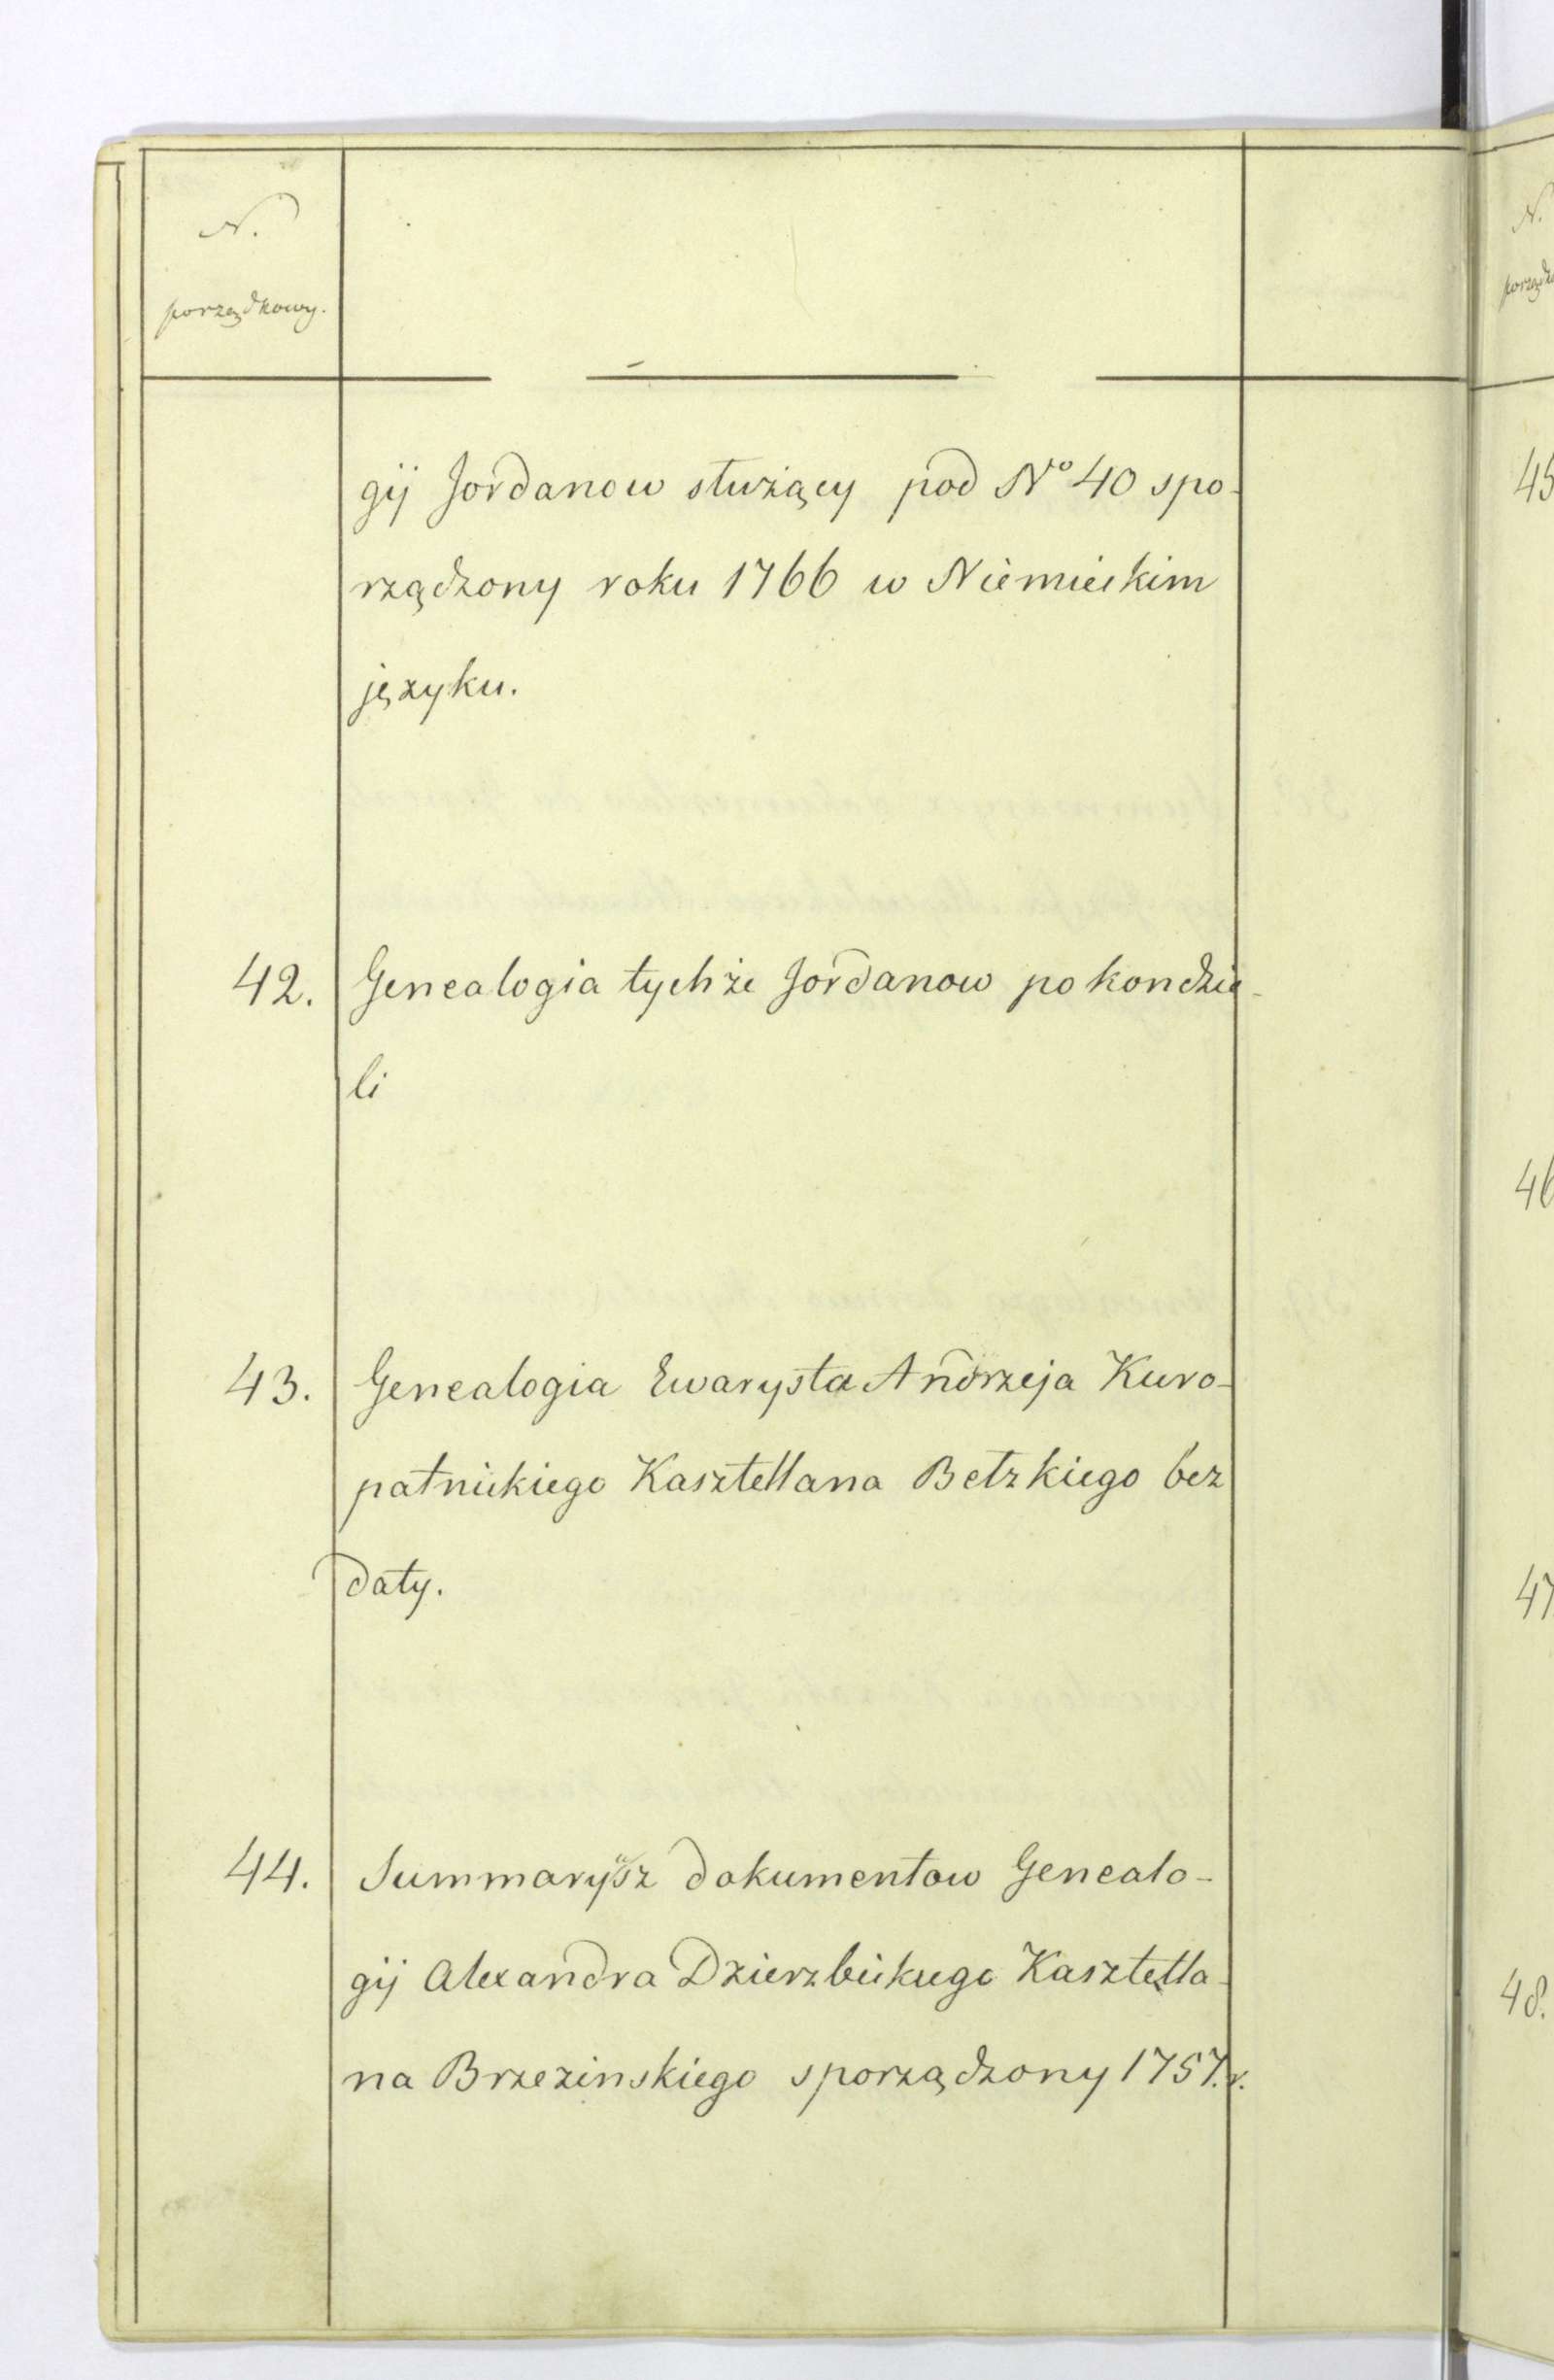 N.
porządkowy.
gij Jordanow służący pod Nº 40 spo-
rządzony roku 1766 w Niemieckim
języku.
42. Genealogia tychże Jordanow po kondzie-
li
43. Genealogia Ewarysta Andrzeja Kuro-
patnickiego Kasztellana Bełzkiego bez
daty.
44. Summaryusz dokumentow Genealo-
gij Alexandra Dzierzbickiego Kasztella-
na Brzezinskiego sporządzony 1757. r.
N.
porządko
45
46
47
48.